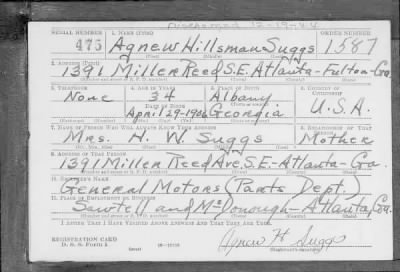 Discharged 12-19-44
SERIAL NUMBER 1. NAME (Print) ORDER NUMBER
475 Agnew Hillsman Suggs 1587
(First) (Middle) (Last)
2. ADDRESS (Print)
1391 Miller Reed S.E. Atlanta-Fulton-Ga.
3. TELEPHONE 4. AGE IN YEARS 5. PLACE OF BIRTH 6. COUNTRY OF CITIZENSHIP
None 34 Albany
DATE OF BIRTH
April-29-1906 Georgia U.S.A.
7. NAME OF PERSON WHO WILL ALWAYS KNOW YOUR ADDRESS 8. RELATIONSHIP OF THAT PERSON
Mrs. H. W. Suggs Mother
9. ADDRESS OF THAT PERSON
1391 Miller Reed Ave S.E.-Atlanta-Ga.
10. EMPLOYER'S NAME
General Motors (Parts Dept.)
11. PLACE OF EMPLOYMENT OR BUSINESS
Sawtell and McDonough-Atlanta, Ga.
I AFFIRM THAT I HAVE VERIFIED ABOVE ANSWERS AND THAT THEY ARE TRUE.
REGISTRATION CARD
D. S. S. Form 1
Agnew H Suggs
(Registrant's signature)